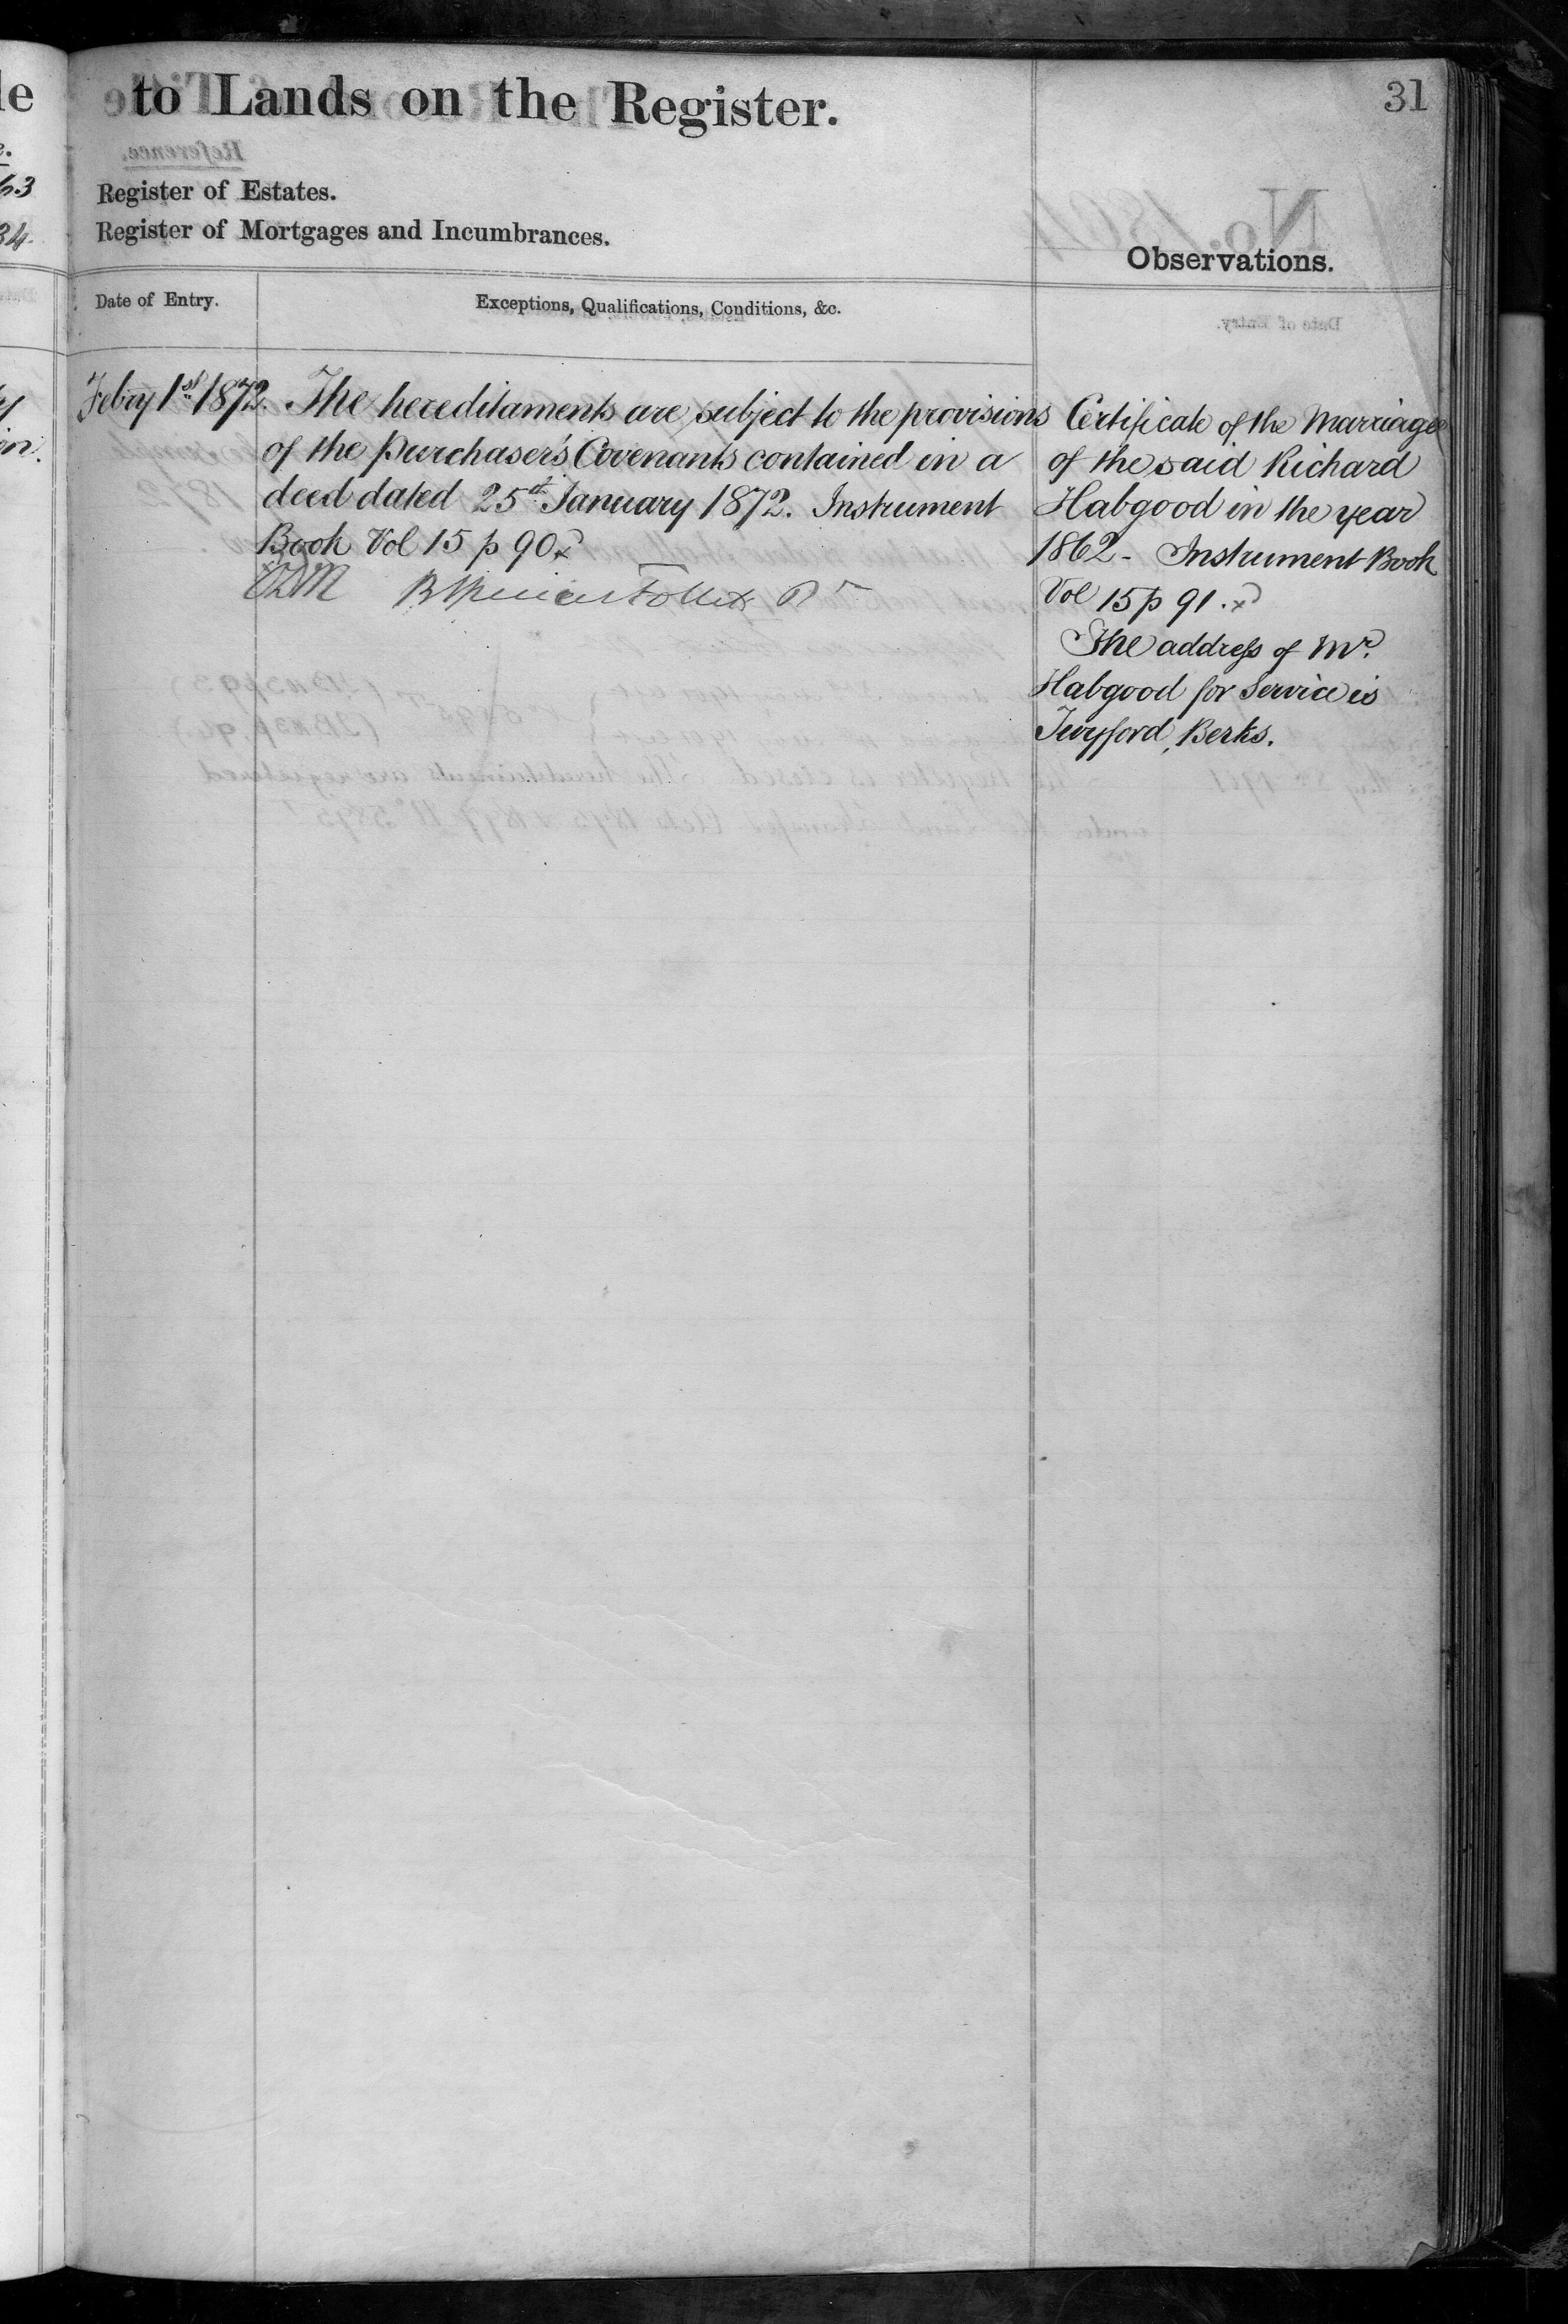 le
to Lands on the Register.
31
63
34
Register of Estates.
Register of Mortgages and Incumbrances.
Observations.
Date of Entry.
Exceptions, Qualifications, Conditions, &c.
Febry 1st 1872. The hereditaments are subject to the provisions
of the purchaser's Covenants contained in a
deed dated 25th January 1872. Instrument
Book Vol 15 p 90
Follett
Certificate of the Marriage
of the said Richard
Habgood in the year
1862 - Instrument Book
Vol 15 p 91.
The address of Mr.
Habgood for Service is
Twyford, Berks.